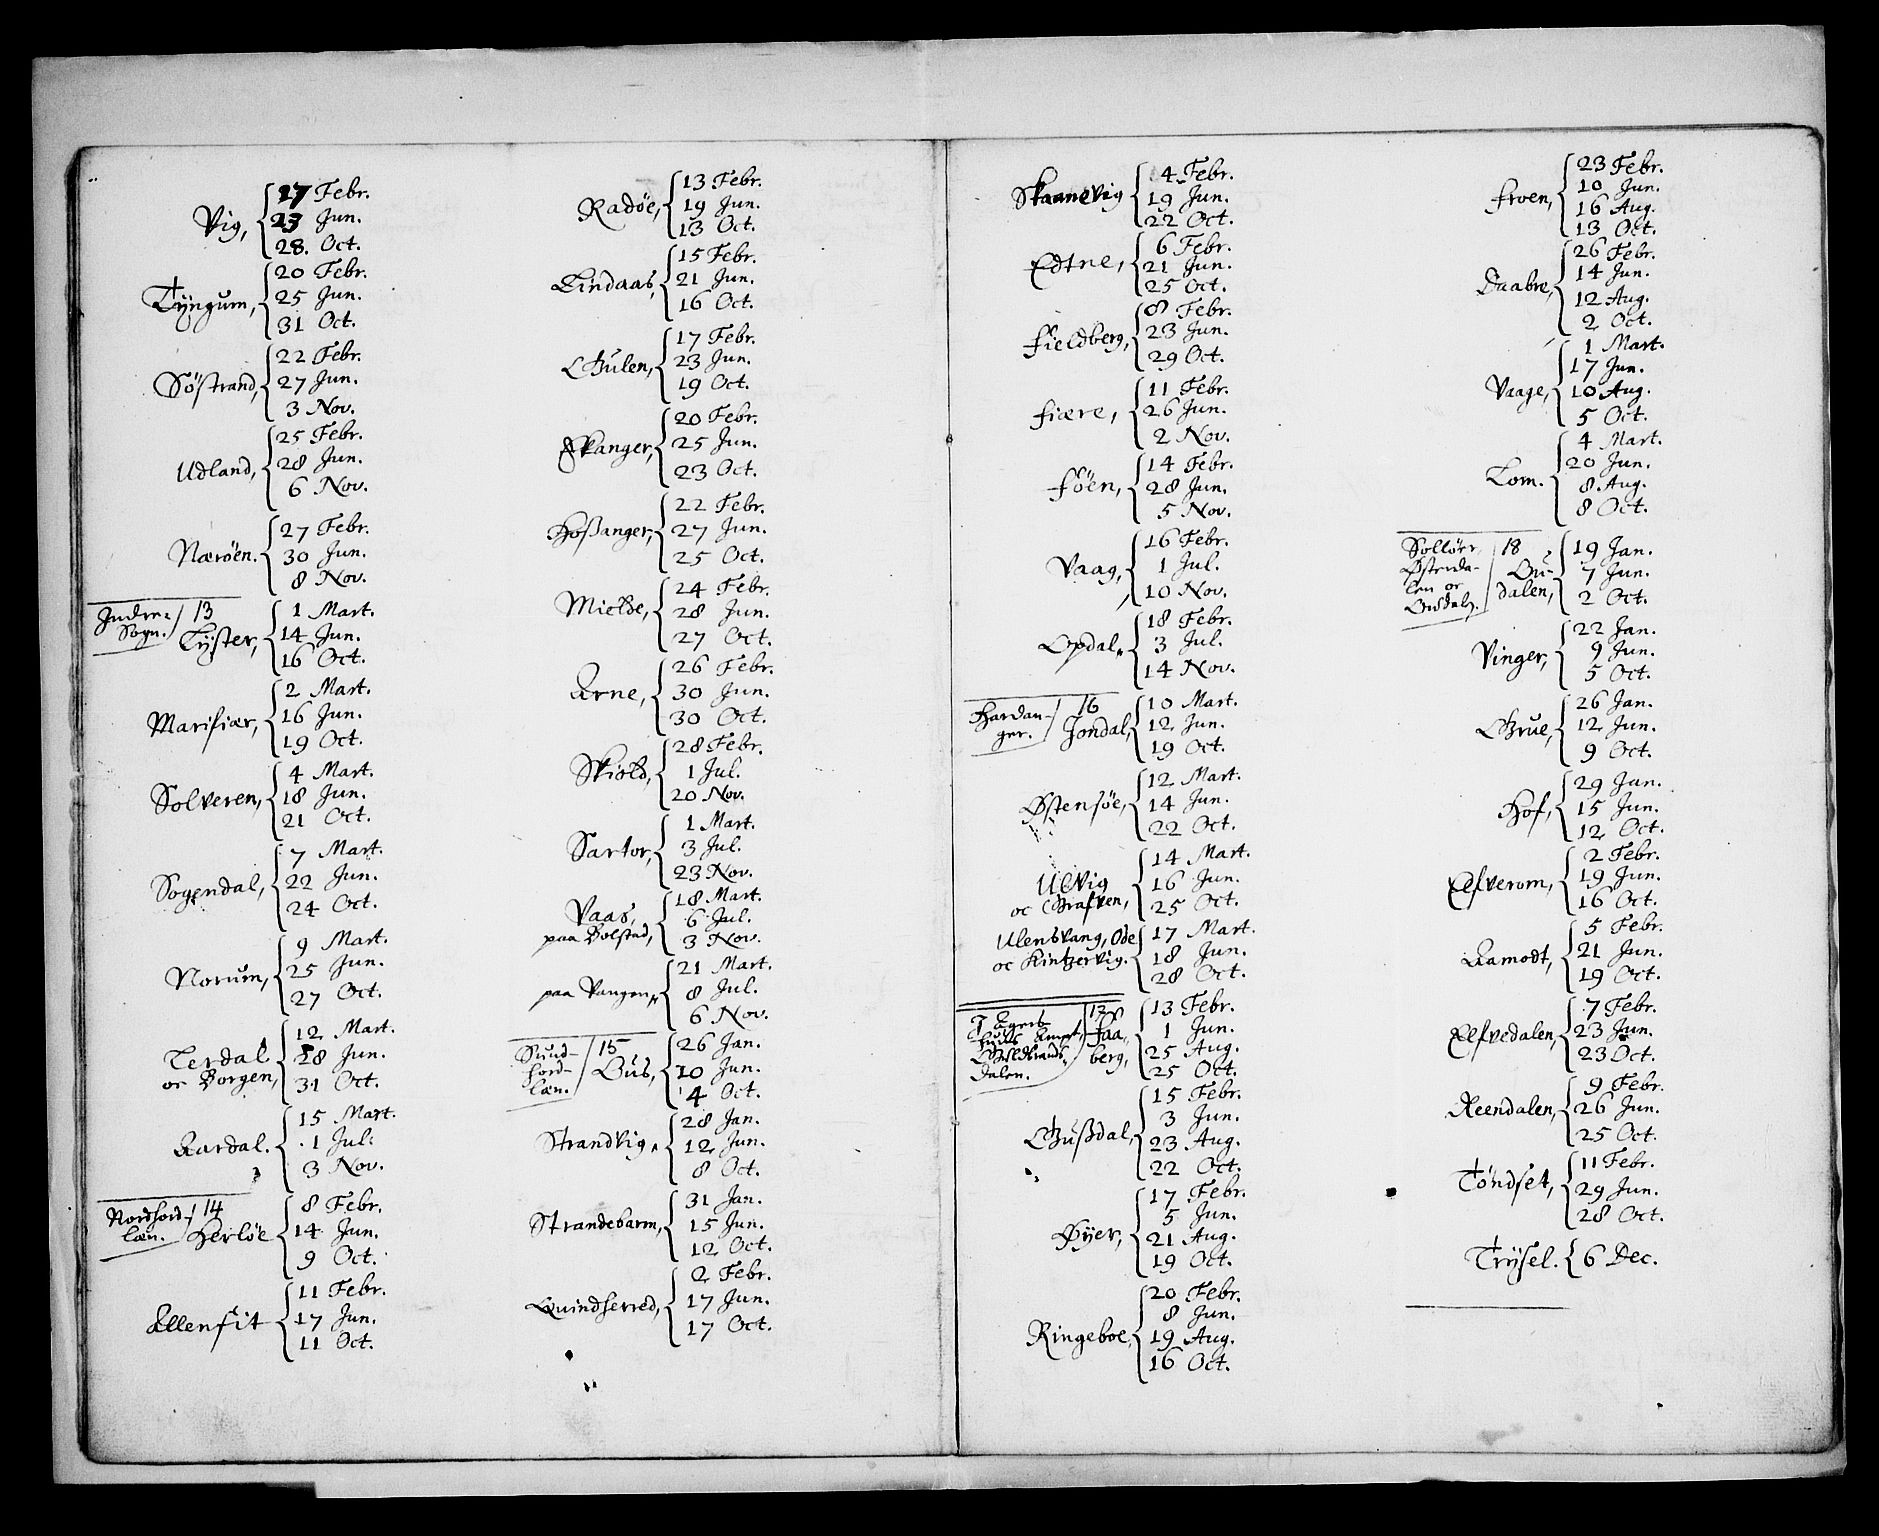 Vig, 17 Febr.
23 Jun.
28. Oct.
Tÿngum, 20 Febr.
25 Jun.
31 Oct.
Söstrand, 22 Febr.
27 Jun.
3 Nov.
Udland, 25 Febr.
28 Jun.
6 Nov.
Nærøen. 27 Febr.
30 Jun.
8 Nov.
Indre-Sogn. 13
Lÿster, 1 Mart.
14 Jun.
16 Oct.
Marifiær, 2 Mart.
16 Jun.
19 Oct.
Solveren, 4 Mart.
18 Jun.
21 Oct.
Sogendal, 7 Mart.
22 Jun.
24 Oct.
Norum, 9 Mart.
25 Jun.
27 Oct.
Lerdal oc Borgen, 12 Mart.
28 Jun.
31 Oct.
Aardal. 15 Mart.
1 Jul:
3 Nov.
Nordhord-læn. 14
Herløe 8 Febr.
14 Jun.
9 Oct.
Allenfit 11 Febr.
17 Jun.
11 Oct.
Radøe, 13 Febr.
19 Jun.
13 Oct.
Lindaas, 15 Febr.
21 Jun.
16 Oct.
Gulen, 17 Febr.
23 Jun.
19 Oct.
Skanger, 20 Febr.
25 Jun.
23 Oct.
Hoßanger, 22 Febr.
27 Jun.
25 Oct.
Mielde, 24 Febr.
28 Jun.
27 Oct.
Arne, 26 Febr.
30 Jun.
30 Oct.
Skiold, 28 Febr.
1 Jul.
20 Nov.
Sartor, 1 Mart.
3 Jul.
23 Nov.
Vaas, paa Bolstad, 18 Mart.
6 Jul.
3 Nov.
paa Vangen, 21 Mart.
8 Jul.
6 Nov.
Sund-hord-læn. 15
Ous, 26 Jan.
10 Jun.
4 Oct.
Strandvig, 28 Jan.
12 Jun.
8 Oct.
Strandebarm, 31 Jan.
15 Jun.
12 Oct.
Quindherred, 2 Febr.
17 Jun.
17 Oct.
Skaanevig 4 Febr.
19 Jun.
22 Oct.
Edtne, 6 Febr.
21 Jun.
25 Oct.
Fieldberg, 8 Febr.
23 Jun.
29 Oct.
Fiære, 11 Febr.
26 Jun.
2 Nov.
Föen, 14 Febr.
28 Jun.
5 Nov.
Vaag, 16 Febr.
1 Jul.
10 Nov.
Opdal, 18 Febr.
3 Jul.
14 Nov.
Hardan-ger. 16
Jondal, 10 Mart.
12 Jun.
19 Oct.
Østensøe, 12 Mart.
14 Jun.
22 Oct.
Ulvig oc Grafven, 14 Mart.
16 Jun.
25 Oct.
Ulensvang, Ode oc Kintzervig. 17 Mart.
18 Jun.
28 Oct.
I Agers-huus Ampt, Guldbrands-dalen. 17
Faa-berg, 13 Febr.
1 Jun.
25 Aug.
25 Oct.
Gußdal, 15 Febr.
3 Jun.
23 Aug.
22 Oct.
Øÿer, 17 Febr.
5 Jun.
21 Aug.
19 Oct.
Ringeboe, 20 Febr.
8 Jun.
19 Aug.
16 Oct.
Froen, 23 Febr.
10 Jun.
16 Aug.
13 Oct.
Daabre, 26 Febr.
14 Jun.
12 Aug.
2 Oct.
Vaage, 1 Mart.
17 Jun.
10 Aug.
5 Oct.
Lom. 4 Mart.
20 Jun.
8 Aug.
8 Oct.
Solløer, Østerda-len oc Oudalen. 18
Ou-dalen, 19 Jan.
7 Jun.
2 Oct.
Vinger, 22 Jan.
9 Jun.
5 Oct.
Grue, 26 Jan.
12 Jun.
9 Oct.
Hof, 29 Jan.
15 Jun.
12 Oct.
Elfverom, 2 Febr.
19 Jun.
16 Oct.
Aamodt, 5 Febr.
21 Jun.
19 Oct.
Elfvedalen, 7 Febr.
23 Jun.
23 Oct.
Reendalen, 9 Febr.
26 Jun.
25 Oct.
Töndset, 11 Febr.
29 Jun.
28 Oct.
Trÿsel. 6 Dec.